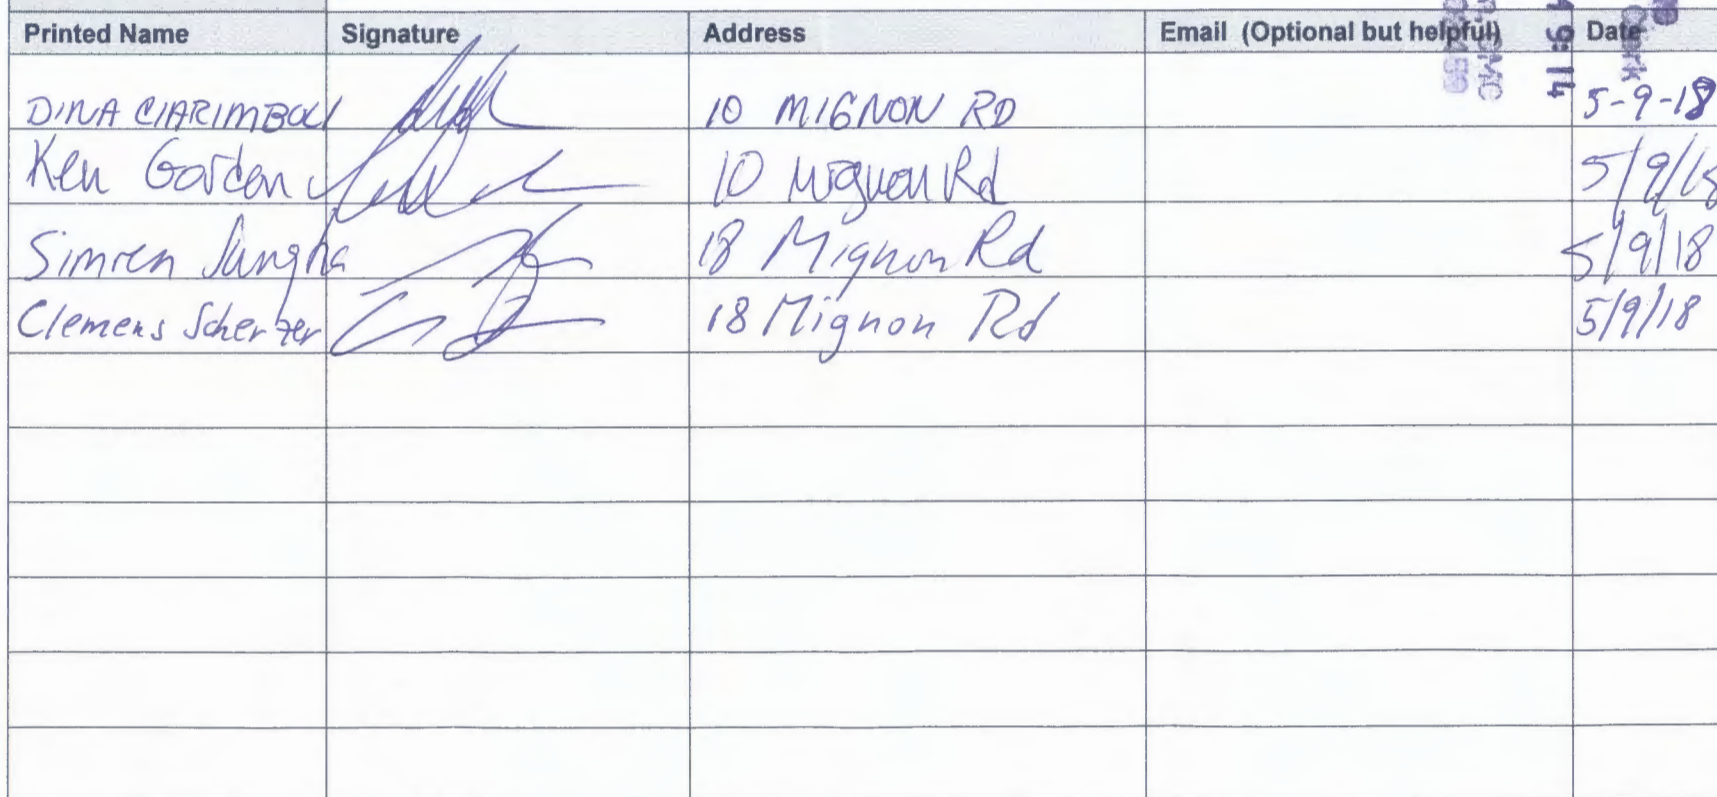 Printed Name Signature Address Email (Optional but helpful) Date
9:14
DINA CIARIMBOLI 10 MIGNON RD 5-9-18
Ken Gordon 10 Mignon Rd 5/9/18
Simren Sangha 18 Mignon Rd 5/9/18
Clemens Scherzer 18 Mignon Rd 5/9/18